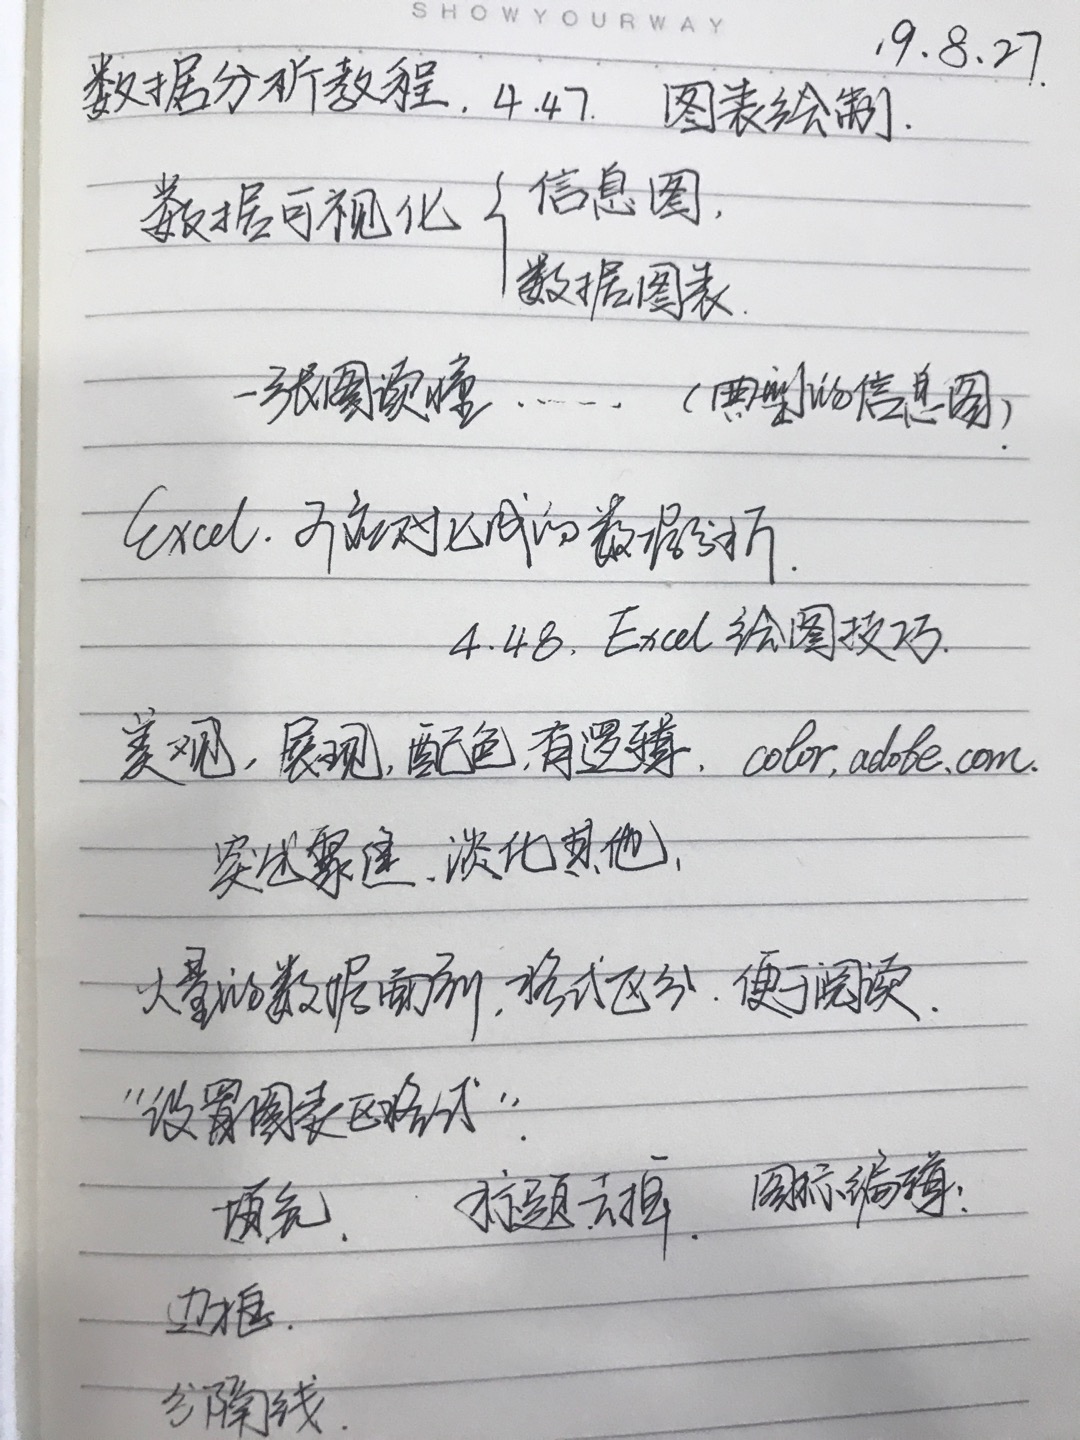 SHOWYOURWAY
19.8.27.
数据分析教程. 4.47. 图表绘制.
数据可视化 { 信息图,
数据图表.
一张图读懂 ...... (典型的信息图).
Excel. 可应对七成的数据分析.
4.48. Excel 绘图技巧.
美观, 展现, 配色, 有逻辑. color.adobe.com.
突出聚焦、淡化其他,
大量的数据面前, 格式区分. 便于阅读.
“设置图表区格式”.
填充. 标题去掉. 图标编辑;
边框.
分隔线.